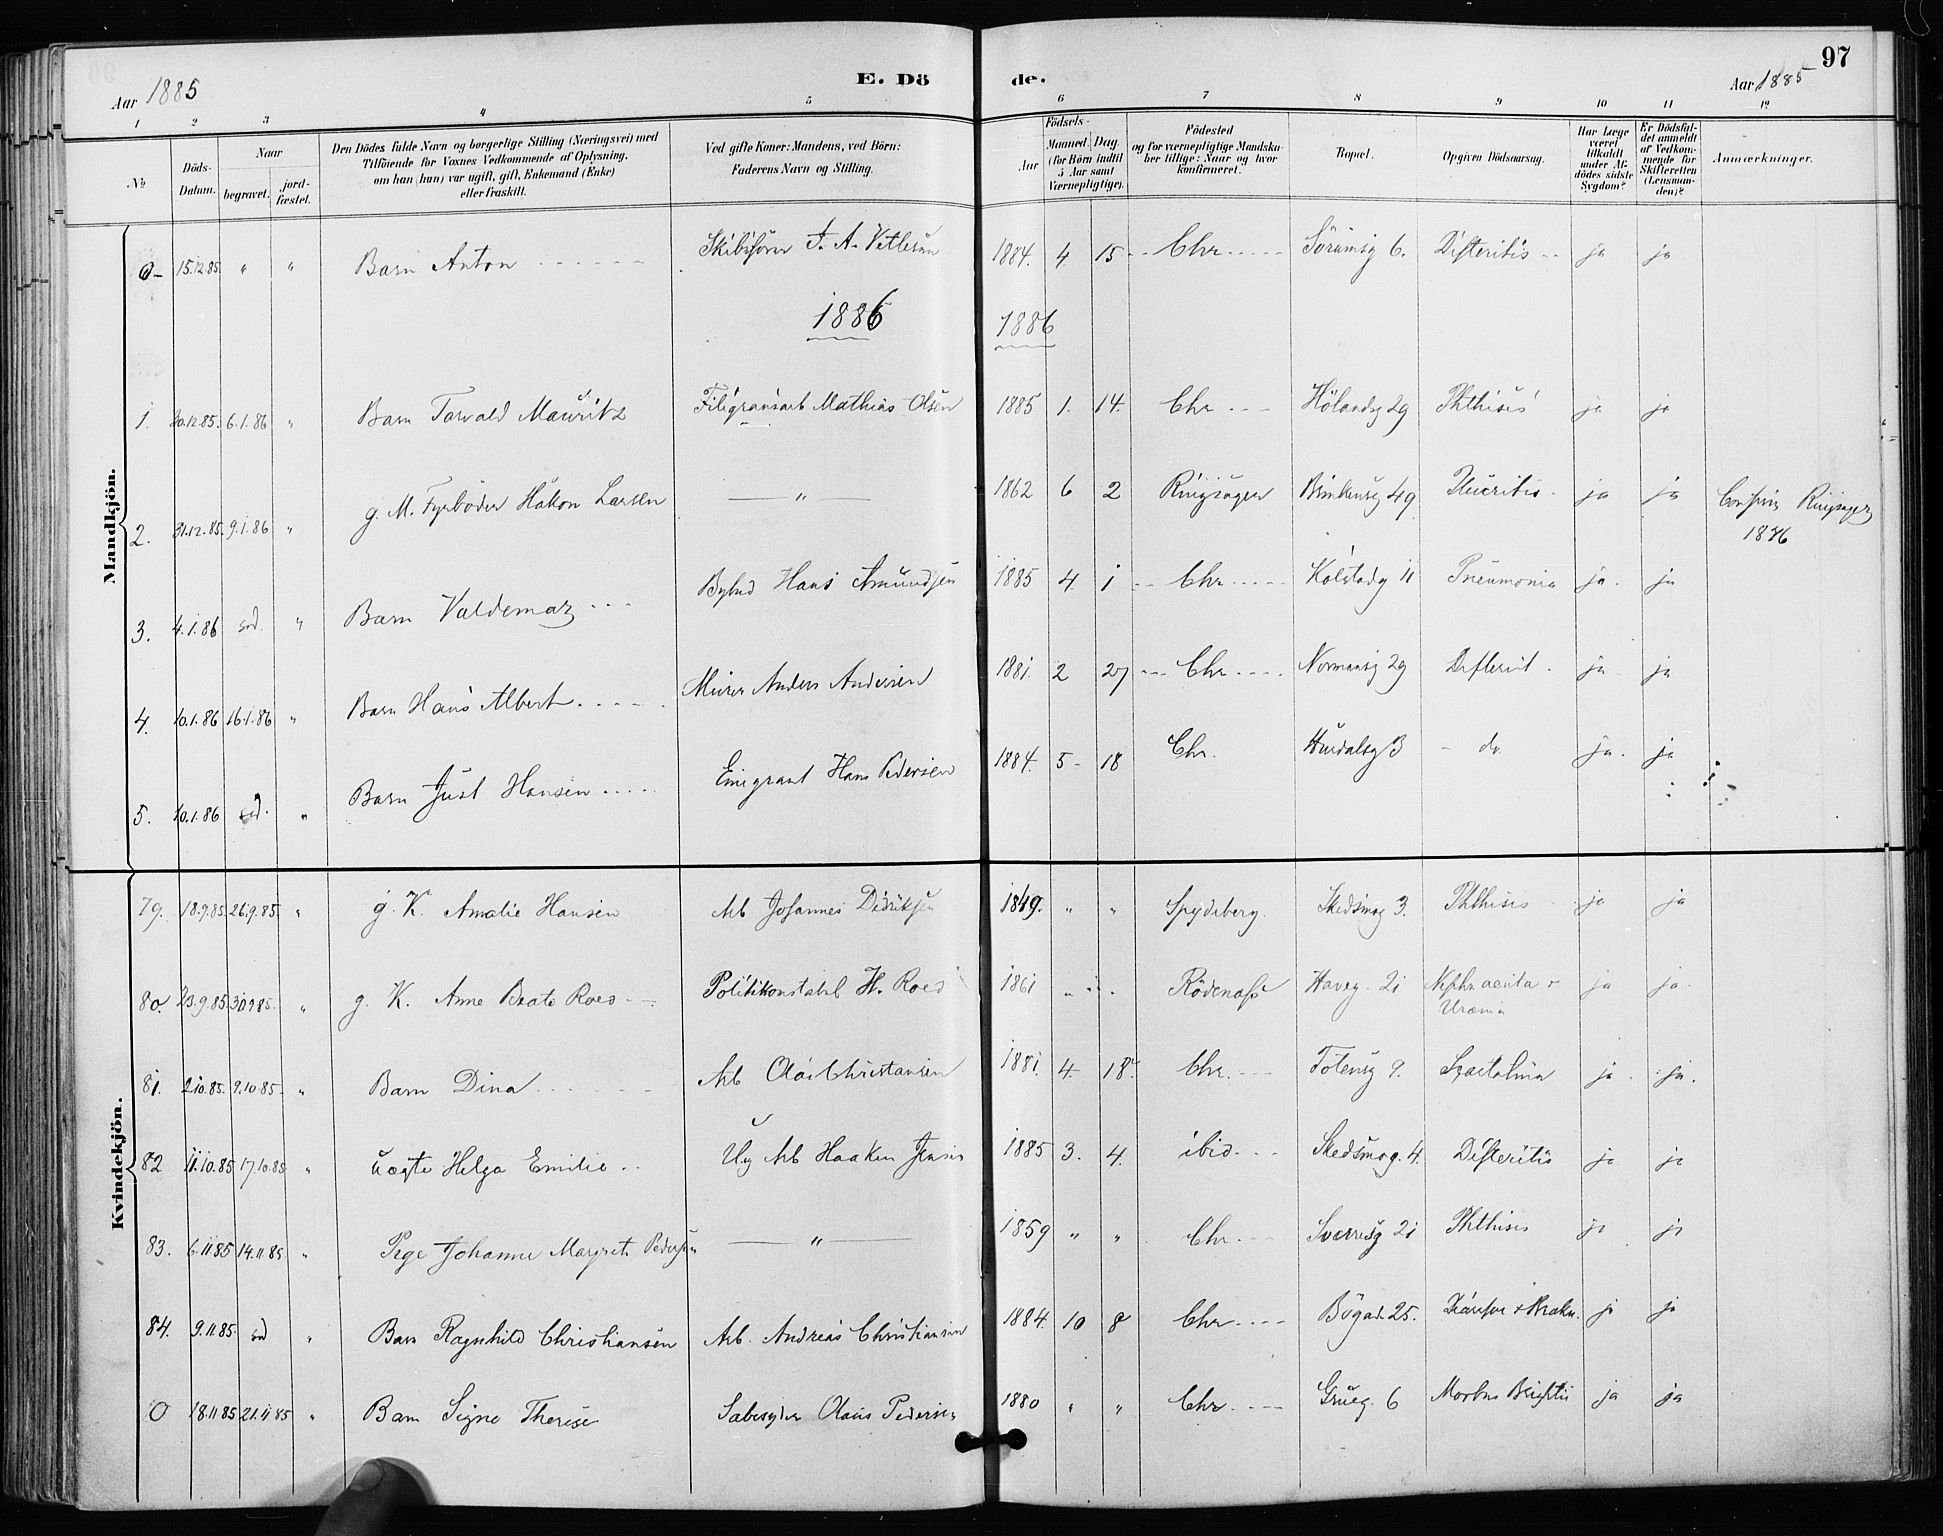 97
Aar 1885 E. Dö de. Aar 1885
1 2 3 4 5 6 7 8 9 10 11 12
№ Döds-Datum. Naar begravet. jord-fæstet. Den Dödes fulde Navn og borgerlige Stilling (Næringsvei) med Tilföiende for Voxnes Vedkommende af Oplysning, om han (hun) var ugift, gift, Enkemand (Enke) eller fraskilt. Ved gifte Koner: Mandens, ved Börn: Faderens Navn og Stilling. Födsels- Aar Maaned. Dag (for Börn indtil 5 Aar samt Værnepligtige). Födested og for værnepligtige Mandskaber tillige: Naar og hvor konfirmeret. Bopæl. Opgiven Dödsaarsag. Har Læge været tilkaldt under Afdödes sidste Sygdom? Er Dödsfaldet anmeldt af Vedkommende for Skifteretten (Lensmanden)? Anmærkninger.
Mandkjön.
0- 15.12.85 " " Barn Anton Skibsförer A. Vetlesen 1884. 4. 15 Chr. Sörumsg 6. Difteritis ja ja
1886 1886
1. 30.12.85. 6.1.86 " Barn Torvald Mauritz Filigransarb Mathias Olsen 1885 1. 14. Chr Hölandsg 29 Phthisis ja ja
2. 31.12.85. 9.1.86 " g. M. Fyrböder Håkon Larsen " 1862 6 2 Ringsager 49 ja ja Ringsager
1876
3. 4.1.86 sod. " Barn Valdemar Bybud Hans Amundsen 1885 4. 1 Chr. Kolstadg 11 Pneumonia ja. ja
4. 10.1.86 16.1.86 " Barn Hans Albert Murer Anders Andersen 1881. 2 27 Chr. Normansg 29 Difterit. ja ja
5. 10.1.86 sod. " Barn Just Hansen Emigrant Hans Pedersen 1884. 5- 18 Chr. Hurdalsg 3 do. ja. ja
Kvindekjön.
79. 18.9.85 26.9.85. " g. K. Amalie Hansen Arb Johannes Didriksen 1849. " " Spydeberg. Skedsmog 3. Phthisis ja ja
80. 23.9.85 30.9.85. " g. K. Anne Beate Roes Politikonstabel H. Roes 1861 " " Rödenæss Haveg. 21 Nephr acuta + ja ja.
Uræmia
81. 2.10.85. 9.10.85. " Barn Dina Arb Olai Christansen 1881. 4. 18. Chr. Totensg 9. ja. ja.
82 11.10.85 17.10.85 " uægte Helga Emilie Ug Arb Haaken Jensen 1885 3. 4. ibid. Skedsmog. 4. Difteritis ja ja
83. 6.11.85 14.11.85 " Pige Johanne Margrete Pedersen " 1859 " " Chr. Sverresg 21 Phthisis ja ja
84. 9.11.85 sod " Barn Ragnhild Christiansen Arb. Andreas Christiansen 1884. 10 8 Chr. Bögad. 25. ja ja
0 18.11.85 21.11.85 " Barn Signe Therese Sæbesyder Olaus Pedersen 1880 " " Chr. Grüeg. 6 Morbus Brightii ja ja